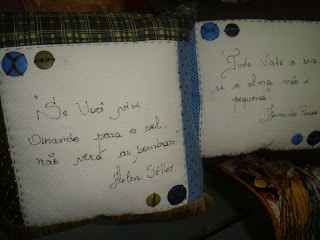 "Se Você vive
Olhando para o sol,
não verá as sombras"
Helen Séller.
"Tudo vale a pena,
se a alma não é
pequena"
Fernando Pessoa